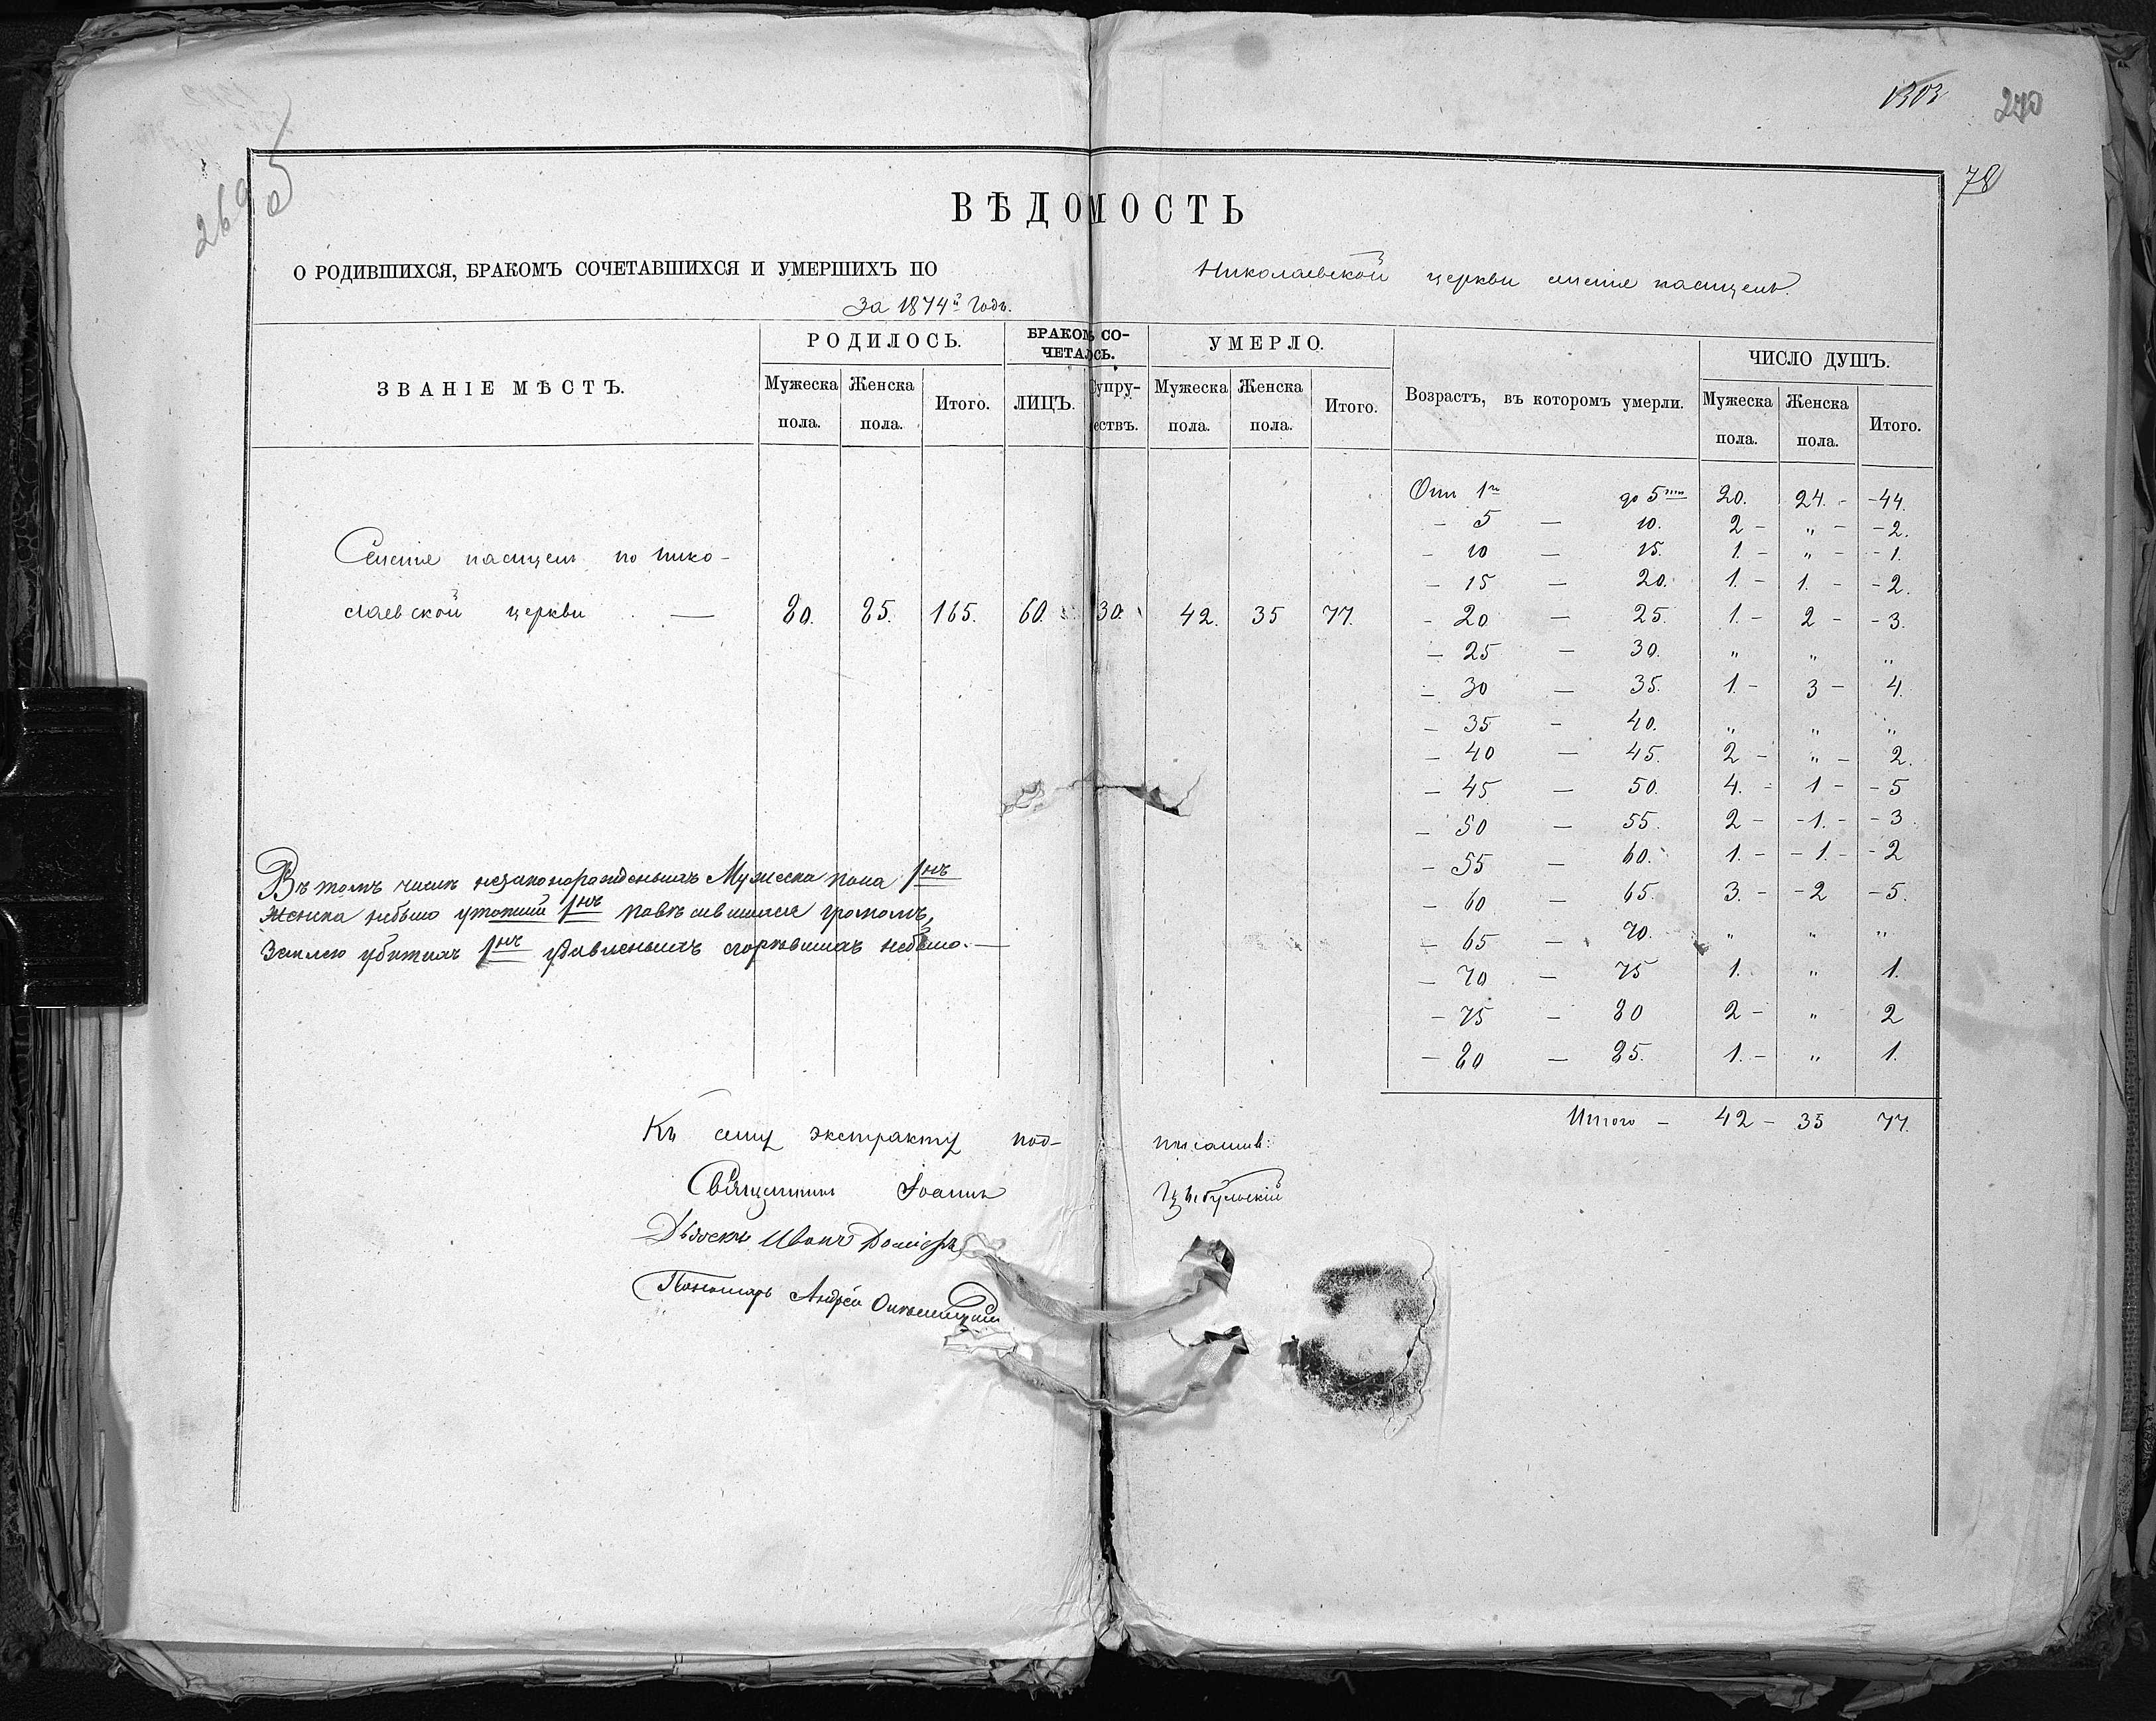 1303 270
269 об
78
ВѢДОМОСТЬ
О РОДИВШИХСЯ, БРАКОМЪ СОЧЕТАВШИХСЯ И УМЕРШИХЪ ПО Николаевской церкви
за 1874й годъ.
ЗВАНІЕ МѢСТЪ. РОДИЛОСЬ. БРАКОМ СО-ЧЕТАЛОСЬ. УМЕРЛО. Возрастъ, въ которомъ умерли. ЧИСЛО ДУШЪ.
Мужеска пола. Женска пола. Итого. ЛИЦЪ. Супру-ествъ. Мужеска пола. Женска пола. Итого. Мужеска пола. Женска пола. Итого.
по Нико-
лаевской церкви — 80. 85. 165. 60. 30. 42. 35 77.
Отъ 1го до 5ти 20. 24. - -44.
- 5 — 10. 2 - „ - -2.
- 10 — 15. 1. - „ - -1.
- 15 — 20. 1. - 1. - -2.
- 20 — 25. 1. - 2 - -3.
- 25 — 30. „ „ „
- 30 — 35. 1. - 3 - 4.
- 35 - 40. „ „ „
- 40 — 45. 2 - „ - 2.
- 45 — 50. 4. - 1 - -5
- 50 — 55. 2 - -1. - -3.
- 55 — 60. 1. - -1. - -2
- 60 — 65. 3. - -2 -5.
- 65 — 70. „ „ „
- 70 — 75 1. „ 1.
- 75 — 80 2 - „ 2
- 80 — 85. 1. - „ 1.
Итого - 42 - 35 77.
Въ томъ числѣ незаконорожденныхъ Мужеска пола 1нъ
Женска небыло утопший 1нъ громомъ,
Землею убитыхъ 1нъ удавленныхъ сгорѣвшихъ небыло. —
Къ сему экстракту под-
Священникъ Іоаннъ Цыбульскій
Дьячекъ Иванъ
Пономарь Андрей